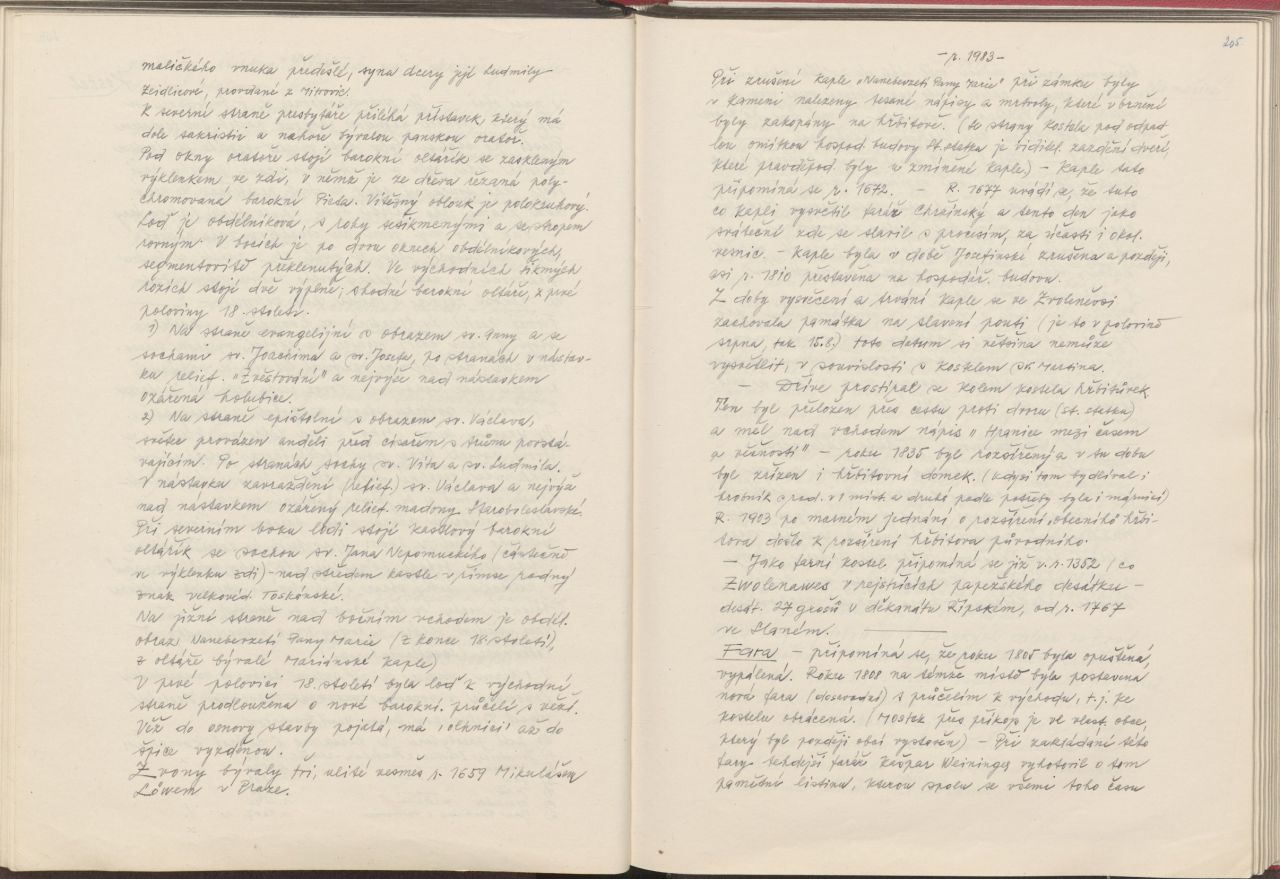 maličkého vnuka předešlé, syna dcery její Ludmily
Zeidlicové, provdané z Mitrovic.
K severní straně presbytáře přiléhá přístavek, který má
dole sakristii a nahoře bývalou panskou oratoř.
Pod okny oratoře stojí barokní oltářík se zaskleným
výklenkem ve zdi, v němž je ze dřeva řezaná poly-
chromovaná barokní Pieta. Vítězný oblouk je polokruhový.
Loď je obdélníková, s rohy sešikmenými a se stropem
rovným. V bocích je po dvou oknech obdélníkových,
segmentovitě překlenutých. Ve východních šikmých
rozích stojí dvě výplně; shodné barokní oltáře, z prvé
poloviny 18. století.
1) Na straně evangelijní s obrazem sv. Anny a se
sochami sv. Joachima a sv. Josefa, po stranách v nástav-
ku relief. "Zvěstování" a nejvýše nad nástavkem
ozářená holubice.
2) Na straně epištolní s obrazem sv. Václava,
světce provázen anděli před císařem s trůnu povstá-
vajícím. Po stranách sochy sv. Víta a sv. Ludmila.
V nástavku zavraždění (relief.) sv. Václava a nejvýš
nad nástavkem ozářený relief. madony Staroboleslavské.
Při severním boku lodi stojí kazdlový barokní
oltářík se sochou sv. Jana Nepomuckého (částečně
ve výklenku zdi) - nad středem kastle v římse rodný
znak velkovéd. Toskánské.
Na jižní straně nad bočním vchodem je obděl.
obraz Nanebevzetí Panny Marie (z konce 18. století,
z oltáře bývalé Mariánské kaple)
V prvé polovici 18. století byla loď k východní
straně prodloužena o nové barokní. průčelí s věží.
Věž do osnovy stavby pojatá, má 'cihnici' až do
špice vyzděnou.
Zvony bývaly tři, ulité vesměs r. 1659 Mikulášem
Löwem v Praze.
205
- r. 1983 -
Při zrušení kaple "Nanebevzetí Panny Marie" při zámku byly
v kameni nalezeny tesané nápisy a mrtvoly, které v brnění
byly zakopány na hřbitově. (Se strany kostela pod opad
lou omítkou hospod. budovy St. statku je viditel. zazdění dveří,
které pravděpod. byly u zmíněné kaple) - Kaple tato
připomíná se r. 1672. - R. 1677 uvádí se, že tuto
co kapli vysvětil farář Chržínský a tento den jako
sváteční zde se slavil s procesím, za účasti i okol.
vesnic. - Kaple byla v době Josefínské zrušena a později,
asi r. 1810 přestavěna na hospodář. budovu.
Z doby vysvěcení a trvání kaple se ve Zvoleněvsi
zachovala památka na slavení pouti (je to v polovině
srpna, tak 15.8.) toto datum si většina nemůže
vysvětlit, v souvislosti s kostelem sv. Martina.
- Dříve prostíral se kolem kostela hřbitůvek.
Ten byl přeložen přes cestu proti dvoru (st. statku)
a měl nad vchodem nápis "Hranice mezi časem
a věčností" - roku 1835 byl rozšířený a v tu dobu
byl zřízen i hřbitovní domek. (kdysi tam bydlíval i
hrobník v 1 míst. a druhá podle potřeby byla i márnicí)
R. 1903 po marném jednání o rozšíření obecního hřbi-
tova došlo k rozšíření hřbitova původního.
- Jako farní kostel připomíná se již v. r. 1352 (co
Zwolenawes v rejstřících papežského desátku -
desát. 27 grošů v děkanátu Řípském, od r. 1767
ve Slaném.
Fara - připomíná se, že roku 1805 byla opuštěná,
vypálená. Roku 1808 na témže místě byla postavena
nová fara (dosavadní) s průčelím k východu, t. j. ke
kostelu obrácená. (Mostek přes příkop je ve vlast. obce,
který byl později obcí vystavěn) - Při zakládání této
fary tehdejší farář Kašpar Weininger vyhotovil o tom
pamětní listinu, kterou spolu se všemi toho času